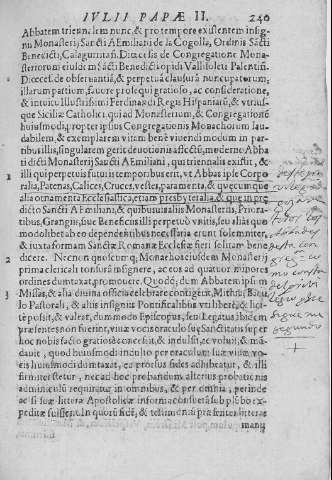 IVLII PAPÆ II. 240
Abbatem triennalem nunc, & pro tempore existentem insignis
Monasterij Sancti AEmiliani de la Cogolla, Ordinis Sācti
Benedicti, Calagurritan. Diœcesis de Congregatione Monasteriorum
eiusdem Sancti Benedicti opidi Vallisoleti Palentin.
Diœces. de obseruantia, & perpetua clausura nuncupatorum,
illarum passium, fauore prosequi gratioso, ac consideratione,
& intuitu Illustrissimi Ferdinandi Regis Hispaniarū, & vtriusque
Siciliæ Catholici, qui ad Monasterium, & Congregationē
huiusmodi, propter ipsius Congregationis Monachorum laudabilem,
& exemplarem vitam benè viuendi modum in partibus
illis, singularem gerit deuotionis affectū, moderno Abbati
dicti Monasterij Sancti AEmiliani, qui triennalis existit, &
illi qui perpetuis futuris temporibus erit, vt Abbas ipse Corporalia,
Patenas, Calices, Cruces, vestes, paramenta, & quæcumque
alia ornamenta Ecclesiastica, etiam presbyteralia, & que in prædicto
Sancti AEmiliani, & quibusuis aliis Monasteriis, Prioratibus,
Grangiis, siue Beneficiis perpetuo vnitis, seu aliàs quomodolibet
eo dependentibus necessaria erunt solemniter,
& iuxta formam Sanctæ Romanæ Ecclesiæ fieri solitam benedicere.
Necnon quoscumq; Monachos eiusdem Monasterij
primæ clericali tonsura insignire, ac eos ad quatuor minores
ordines dumtaxat, promouere. Quodq; dum Abbatem ipsum
Missas, & alia diuina officia celebrare contigerit, Mithra, Baculo
Pastorali, & aliis insigniis Pontificalibus vti liberè, & licitè
possit, & valeat, dummodo Episcopus, seu Legatus ibidem
præsentes non fuerint, viuæ vocis oraculo suæ Sanctitatis super
hoc nobis facto gratiosè concessit, & indulsit, ac voluit, & mādauit,
quod huiusmodi indulto per oraculum suæ viuæ vocis
huiusmodi dumtaxat, ex prorsus fides adhibeatur, & illi
firmiter stetur, nec ad hoc probandum alterius probationis
adminiculū requiratur in omnibus, & per omnia, perinde
ac si suæ litteræ Apostolicæ in forma consueta sub plūbo expeditæ
fuissent. In quorū fidē, & testimoniū præsentes litteras
manu